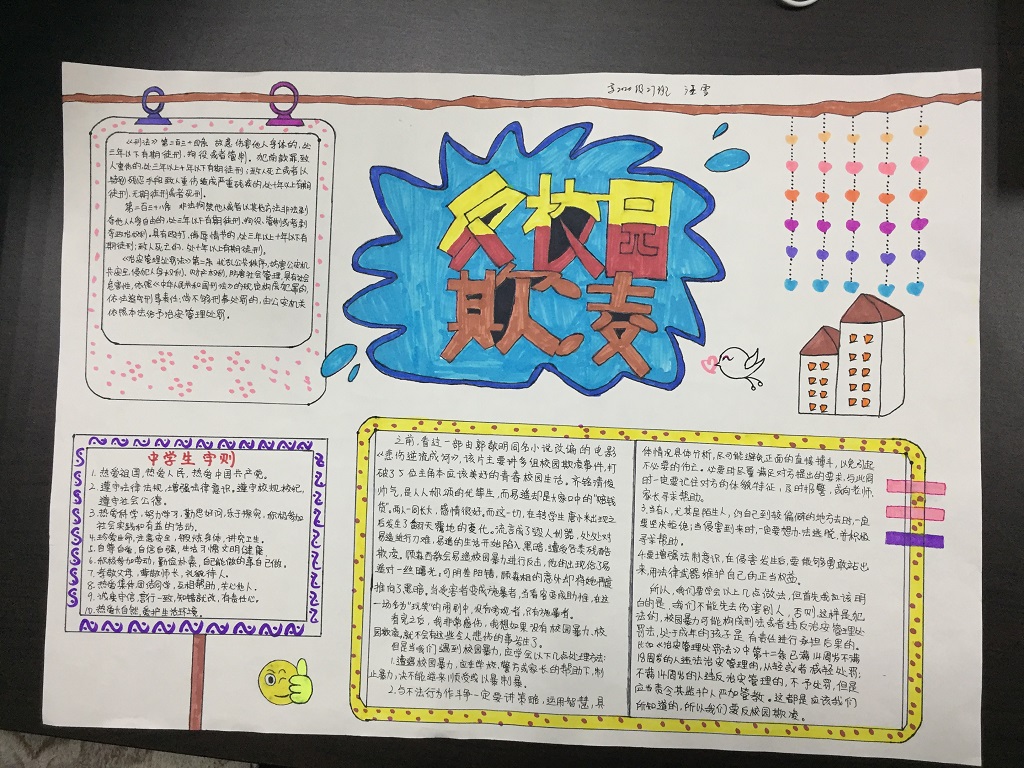 高2020级27班 汪雪
反校园
欺凌
《刑法》第二百三十四条 故意伤害他人身体的,处
三年以下有期徒刑、拘役或者管制。犯前款罪,致
人重伤的,处三年以上十年以下有期徒刑;致人死亡或者以
特别残忍手段致人重伤造成严重残疾的,处十年以上有期
徒刑、无期徒刑或者死刑。
第二百三十八条 非法拘禁他人或者以其他方法非法剥
夺他人人身自由的,处三年以下有期徒刑、拘役、管制或者剥
夺政治权利。具有殴打、侮辱情节的,处三年以上十年以下有
期徒刑;致人死亡的,处十年以上有期徒刑。
《治安管理处罚法》第二条 扰乱公共秩序,妨害公共
共安全,侵犯人身权利、财产权利,妨害社会管理,具有社会
危害性,依照《中华人民共和国刑法》的规定构成犯罪的,
依法追究刑事责任;尚不够刑事处罚的,由公安机关
依照本法给予治安管理处罚。
中学生守则
1.热爱祖国,热爱人民,热爱中国共产党。
2.遵守法律法规,增强法律意识。遵守校规校纪,
遵守社会公德。
3.热爱科学,努力学习,勤思好问,乐于探究,积极参加
社会实践和有益的活动。
4.珍爱生命,注意安全,锻炼身体,讲究卫生。
5.自尊自爱,自信自强,生活习惯文明健康。
6.积极参加劳动,勤俭朴素,自己能做的事自己做。
7.孝敬父母,尊敬师长,礼貌待人。
8.热爱集体,团结同学,互相帮助,关心他人。
9.诚实守信,言行一致,知错就改,有责任心。
10.热爱大自然,爱护生活环境。
之前,看过一部由郭敬明同名小说改编的电影
《悲伤逆流成河》,该片主要讲多组校园欺凌事件,打
破了5位主角本应该美好的青春校园生活。齐铭清俊
帅气,是人人称颂的优等生,而易遥却是大家口中的“赔钱
货”。两人一同长大,感情很好。而这一切,在转学生唐小米出现之
后发生了翻天覆地的变化。流言成了毁人利器,处处对
易遥进行刀难,易遥的生活开始陷入黑暗,遭受各类残酷
欺凌。顾森西教会易遥校园暴力进行反击,他的出现给了易
遥对一丝曙光。可阴差阳错,顾森湘的意外却将她再度
推向了黑暗。当受害者变成施暴者,当看客变成助推,在这
一场名为“玩笑”的闹剧中,没有旁观者,只有施暴者。
看完之后,我非常感伤,我想如果没有校园暴力、校
园欺凌,就不会有这些令人悲伤的事发生了。
但是当我们遇到校园暴力,应学会以下几点处理方法:
1.遭遇校园暴力,应在学校、警方或家长的帮助下,制
止暴力,决不能逆来顺受或以暴制暴。
2.与不法行为作斗争一定要讲策略,运用智慧,具
体情况具体分析,尽可能避免正面的直接搏斗,以免引起
不必要的伤亡。必要时尽量满足对方提出的要求,与此同
时一定要记住对方的体貌特征,及时报警,或向老师、
家长寻求帮助。
3.当有人,尤其是陌生人,约自己到较偏僻的地方去时,一定
要坚决拒绝;当侵害到来时,一定要想办法逃脱,并积极
寻求帮助。
4.要增强法制意识,在侵害发生后,要能够勇敢站出
来,用法律武器维护自己的正当权益。
所以,我们要学会以上几点做法,但首先我们该明
白的是,我们不能先去伤害别人,否则这样是犯
法的,校园暴力可能构成刑法或者违反治安管理处
罚法,处于成年的孩子是有责任进行承担后果的。
比如《治安管理处罚法》中第十二条已满14周岁不满
18周岁的人违法治安管理的,从轻或者减轻处罚;
不满14周岁的人违反治安管理的,不予处罚,但是
应当责令其监护人严加管教。这都是应该我们
所知道的,所以我们要反校园欺凌。